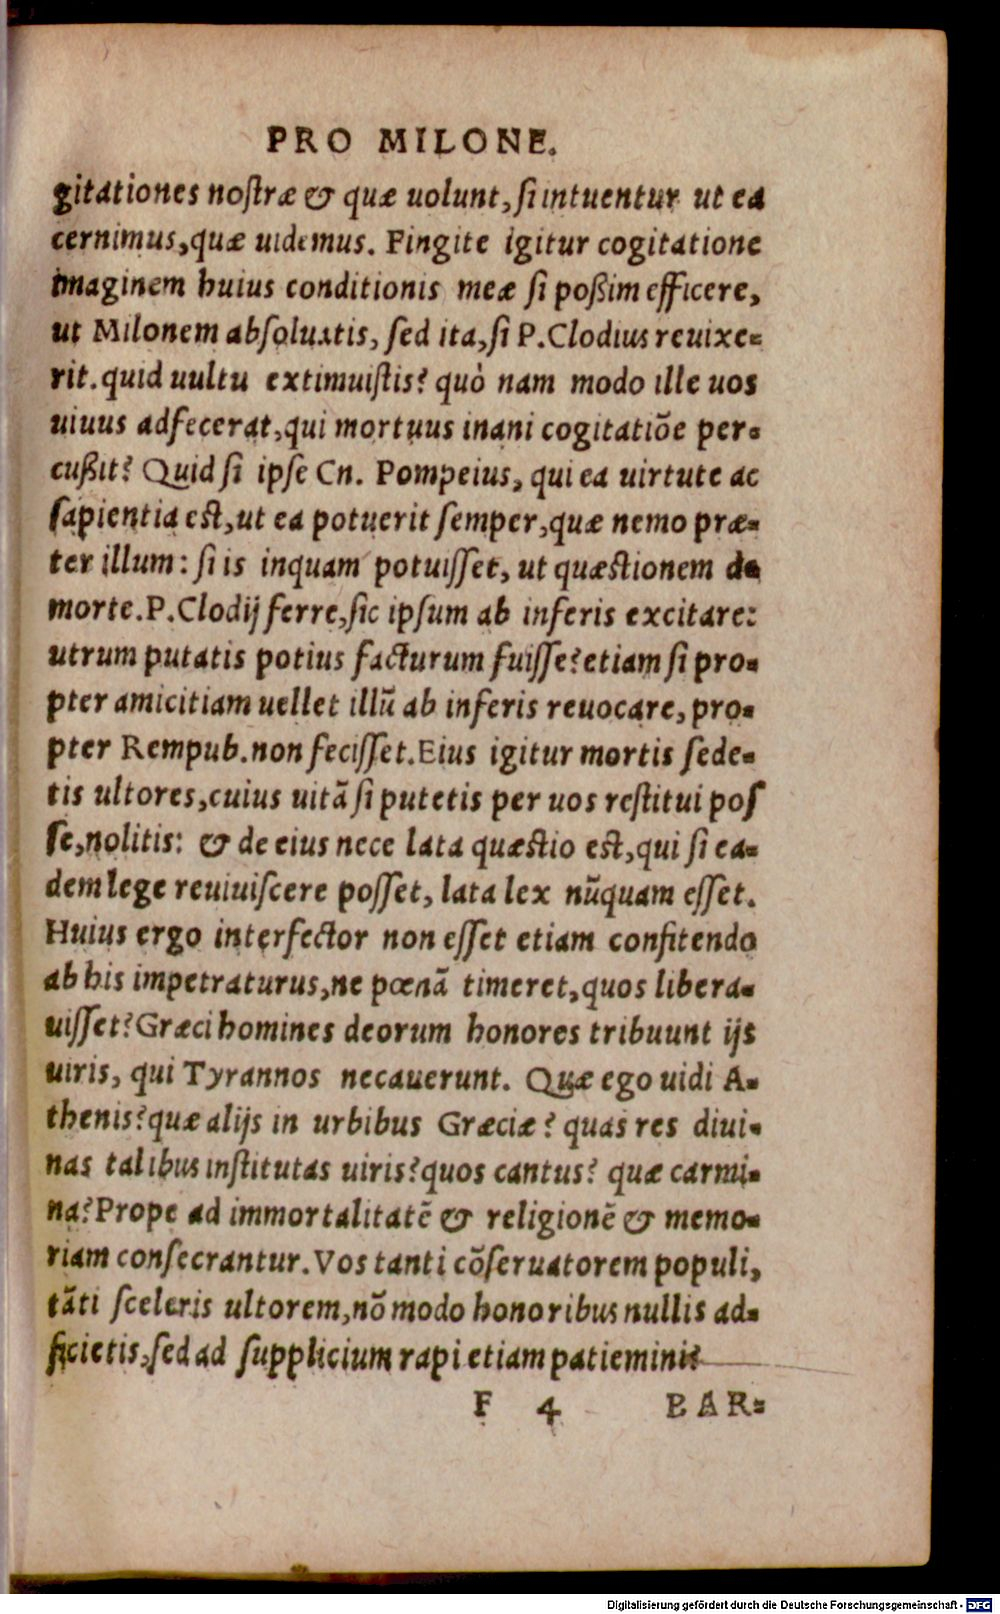 PRO MILONE.
gitationes nostræ & quæ uolunt, si intuentur ut ea
cernimus, quæ uidemus. Fingite igitur cogitatione
imaginem huius conditionis meæ si poßim efficere,
ut Milonem absoluatis, sed ita, si P. Clodius reuixe-
rit. quid uultu extimuistis? quò nam modo ille uos
uiuus adfecerat, qui mortuus inani cogitatiõe per-
cußit? Quid si ipse Cn. Pompeius, qui ea uirtute ac
sapientia est, ut ea potuerit semper, quæ nemo præ-
ter illum: si is inquam potuisset, ut quæstionem de
morte. P. Clodij ferre, sic ipsum ab inferis excitare:
utrum putatis potius facturum fuisse? etiam si pro-
pter amicitiam uellet illũ ab inferis reuocare, pro-
pter Rempub. non fecisset. Eius igitur mortis sede-
tis ultores, cuius uitã si putetis per uos restitui pos
se, nolitis: & de eius nece lata quæstio est, qui si ea-
dem lege reuiuiscere posset, lata lex nũquam esset.
Huius ergo interfector non esset etiam confitendo
ab his impetraturus, ne pœnã timeret, quos libera-
uisset? Græci homines deorum honores tribuunt ijs
uiris, qui Tyrannos necauerunt. Quæ ego uidi A-
thenis? quæ alijs in urbibus Græciæ? quas res diui-
nas talibus institutas uiris? quos cantus? quæ carmi-
na? Prope ad immortalitatẽ & religionẽ & memo-
riam consecrantur. Vos tanti cõseruatorem populi,
tãti sceleris ultorem, nõ modo honoribus nullis ad-
ficietis, sed ad supplicium rapi etiam patiemini?
F 4 BAR-
Digitalisierung gefördert durch die Deutsche Forschungsgemeinschaft - DFG